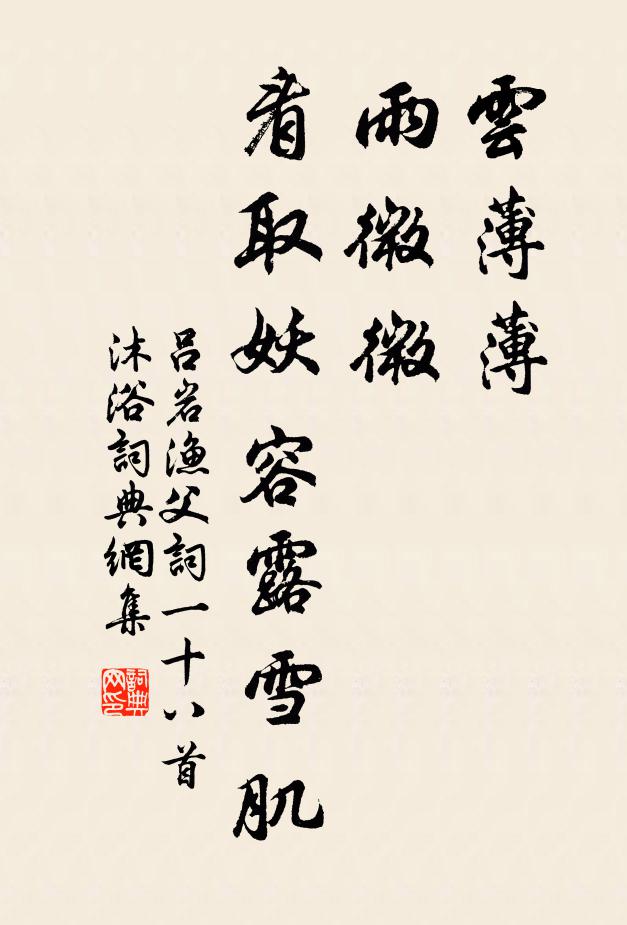 雲薄薄
雨微微
看取妖容露雪肌
吕岩漁父詞一十八首
沐浴詞典網集
詞典網印